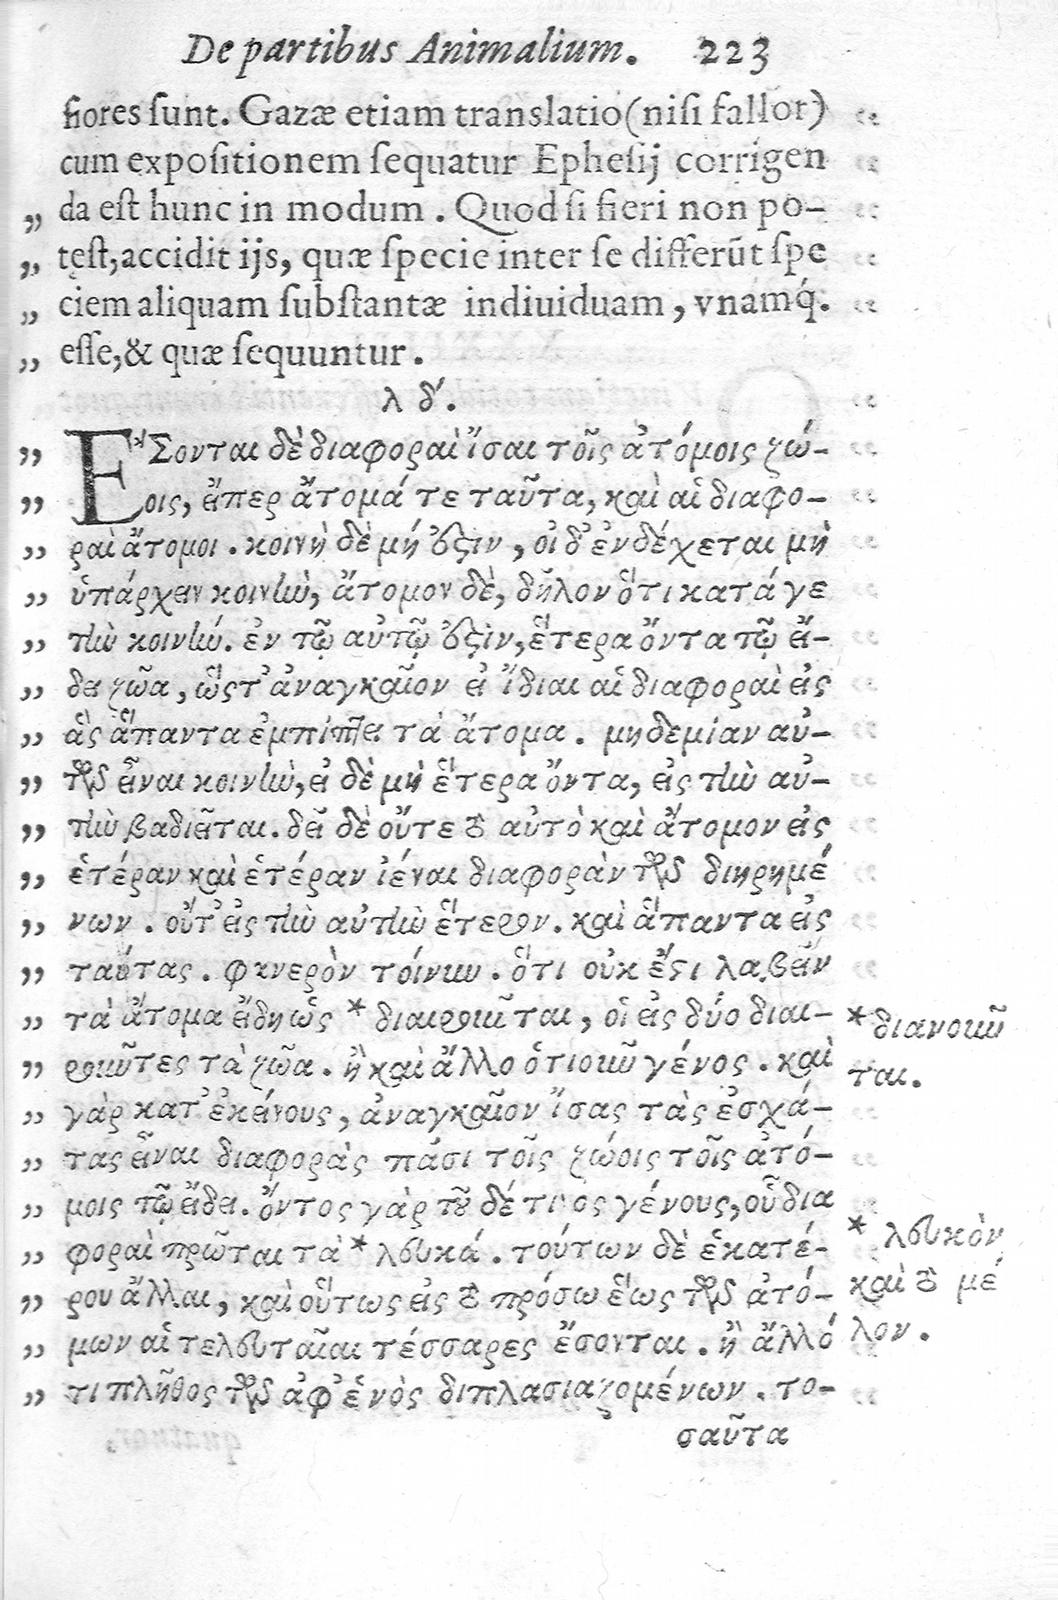 De partibus Animalium. 223
fiores sunt. Gazæ etiam translatio (nisi fallor)
cum expositionem sequatur Ephesij corrigen
„ da est hunc in modum. Quod si fieri non po-
„ test, accidit ijs, quæ specie inter se differūt spe
„ ciem aliquam substantæ indiuiduam, vnamq́.
„ esse, & quæ sequuntur.
λ δ΄.
„ Ἔσονται δὲ διαφοραὶ ἴσαι τοῖς ἀτόμοις ζώ-
„ οις, εἴπερ ἄτομά τε ταῦτα, καὶ αἱ διαφο-
„ ραὶ ἄτομοι. κοινὴ δὲ μή ἐστιν, οἱ δ' ἐνδέχεται μὴ
„ ὑπάρχειν κοινὴν, ἄτομον δὲ, δῆλον ὅτι κατά γε
„ τὴν κοινήν. ἐν τῷ αὐτῷ ἐστὶν, ἕτερα ὄντα τῷ εἴ-
„ δει ζῶα, ὥστ' ἀναγκαῖον εἰ ἴδιαι αἱ διαφοραὶ εἰς
„ ἃς ἅπαντα ἐμπίπτει τὰ ἄτομα. μηδεμίαν αὐ-
„ τῶν εἶναι κοινὴν, εἰ δὲ μὴ ἕτερα ὄντα, εἰς τὴν αὐ-
„ τὴν βαδιεῖται. δεῖ δὲ οὔτε τὸ αὐτὸ καὶ ἄτομον εἰς
„ ἑτέραν καὶ ἑτέραν ἰέναι διαφορὰν τῶν διῃρημέ
„ νων. οὔτ' εἰς τὴν αὐτὴν ἕτερον. καὶ ἅπαντα εἰς
„ ταύτας. φανερὸν τοίνυν. ὅτι οὐκ ἔστι λαβεῖν
„ τὰ ἄτομα εἴδη ὡς * διαιροῦνται, οἱ εἰς δύο διαι-
* διανοοῦν
„ ροῦντες τὰ ζῶα. ἢ καὶ ἄλλο ὁτιοοῦν γένος. καὶ
ται.
„ γὰρ κατ' ἐκείνους, ἀναγκαῖον ἴσας τὰς ἐσχά-
„ τας εἶναι διαφορὰς πάσι τοῖς ζώοις τοῖς ἀτό-
„ μοις τῷ εἴδει. ὄντος γὰρ τοῦ δέ τινος γένους, οὗ δια
„ φοραὶ πρῶται τὰ * λευκά. τούτων δὲ ἑκατέ-
* λευκὸν
„ ρου ἄλλαι, καὶ οὕτως εἰς τὸ πρόσω ἕως τῶν ἀτό-
καὶ τὸ μέ
„ μων αἱ τελευταῖαι τέσσαρες ἔσονται. ἢ ἄλλό
λον.
„ τι πλῆθος τῶν ἀφ' ἑνὸς διπλασιαζομένων. το-
σαῦτα